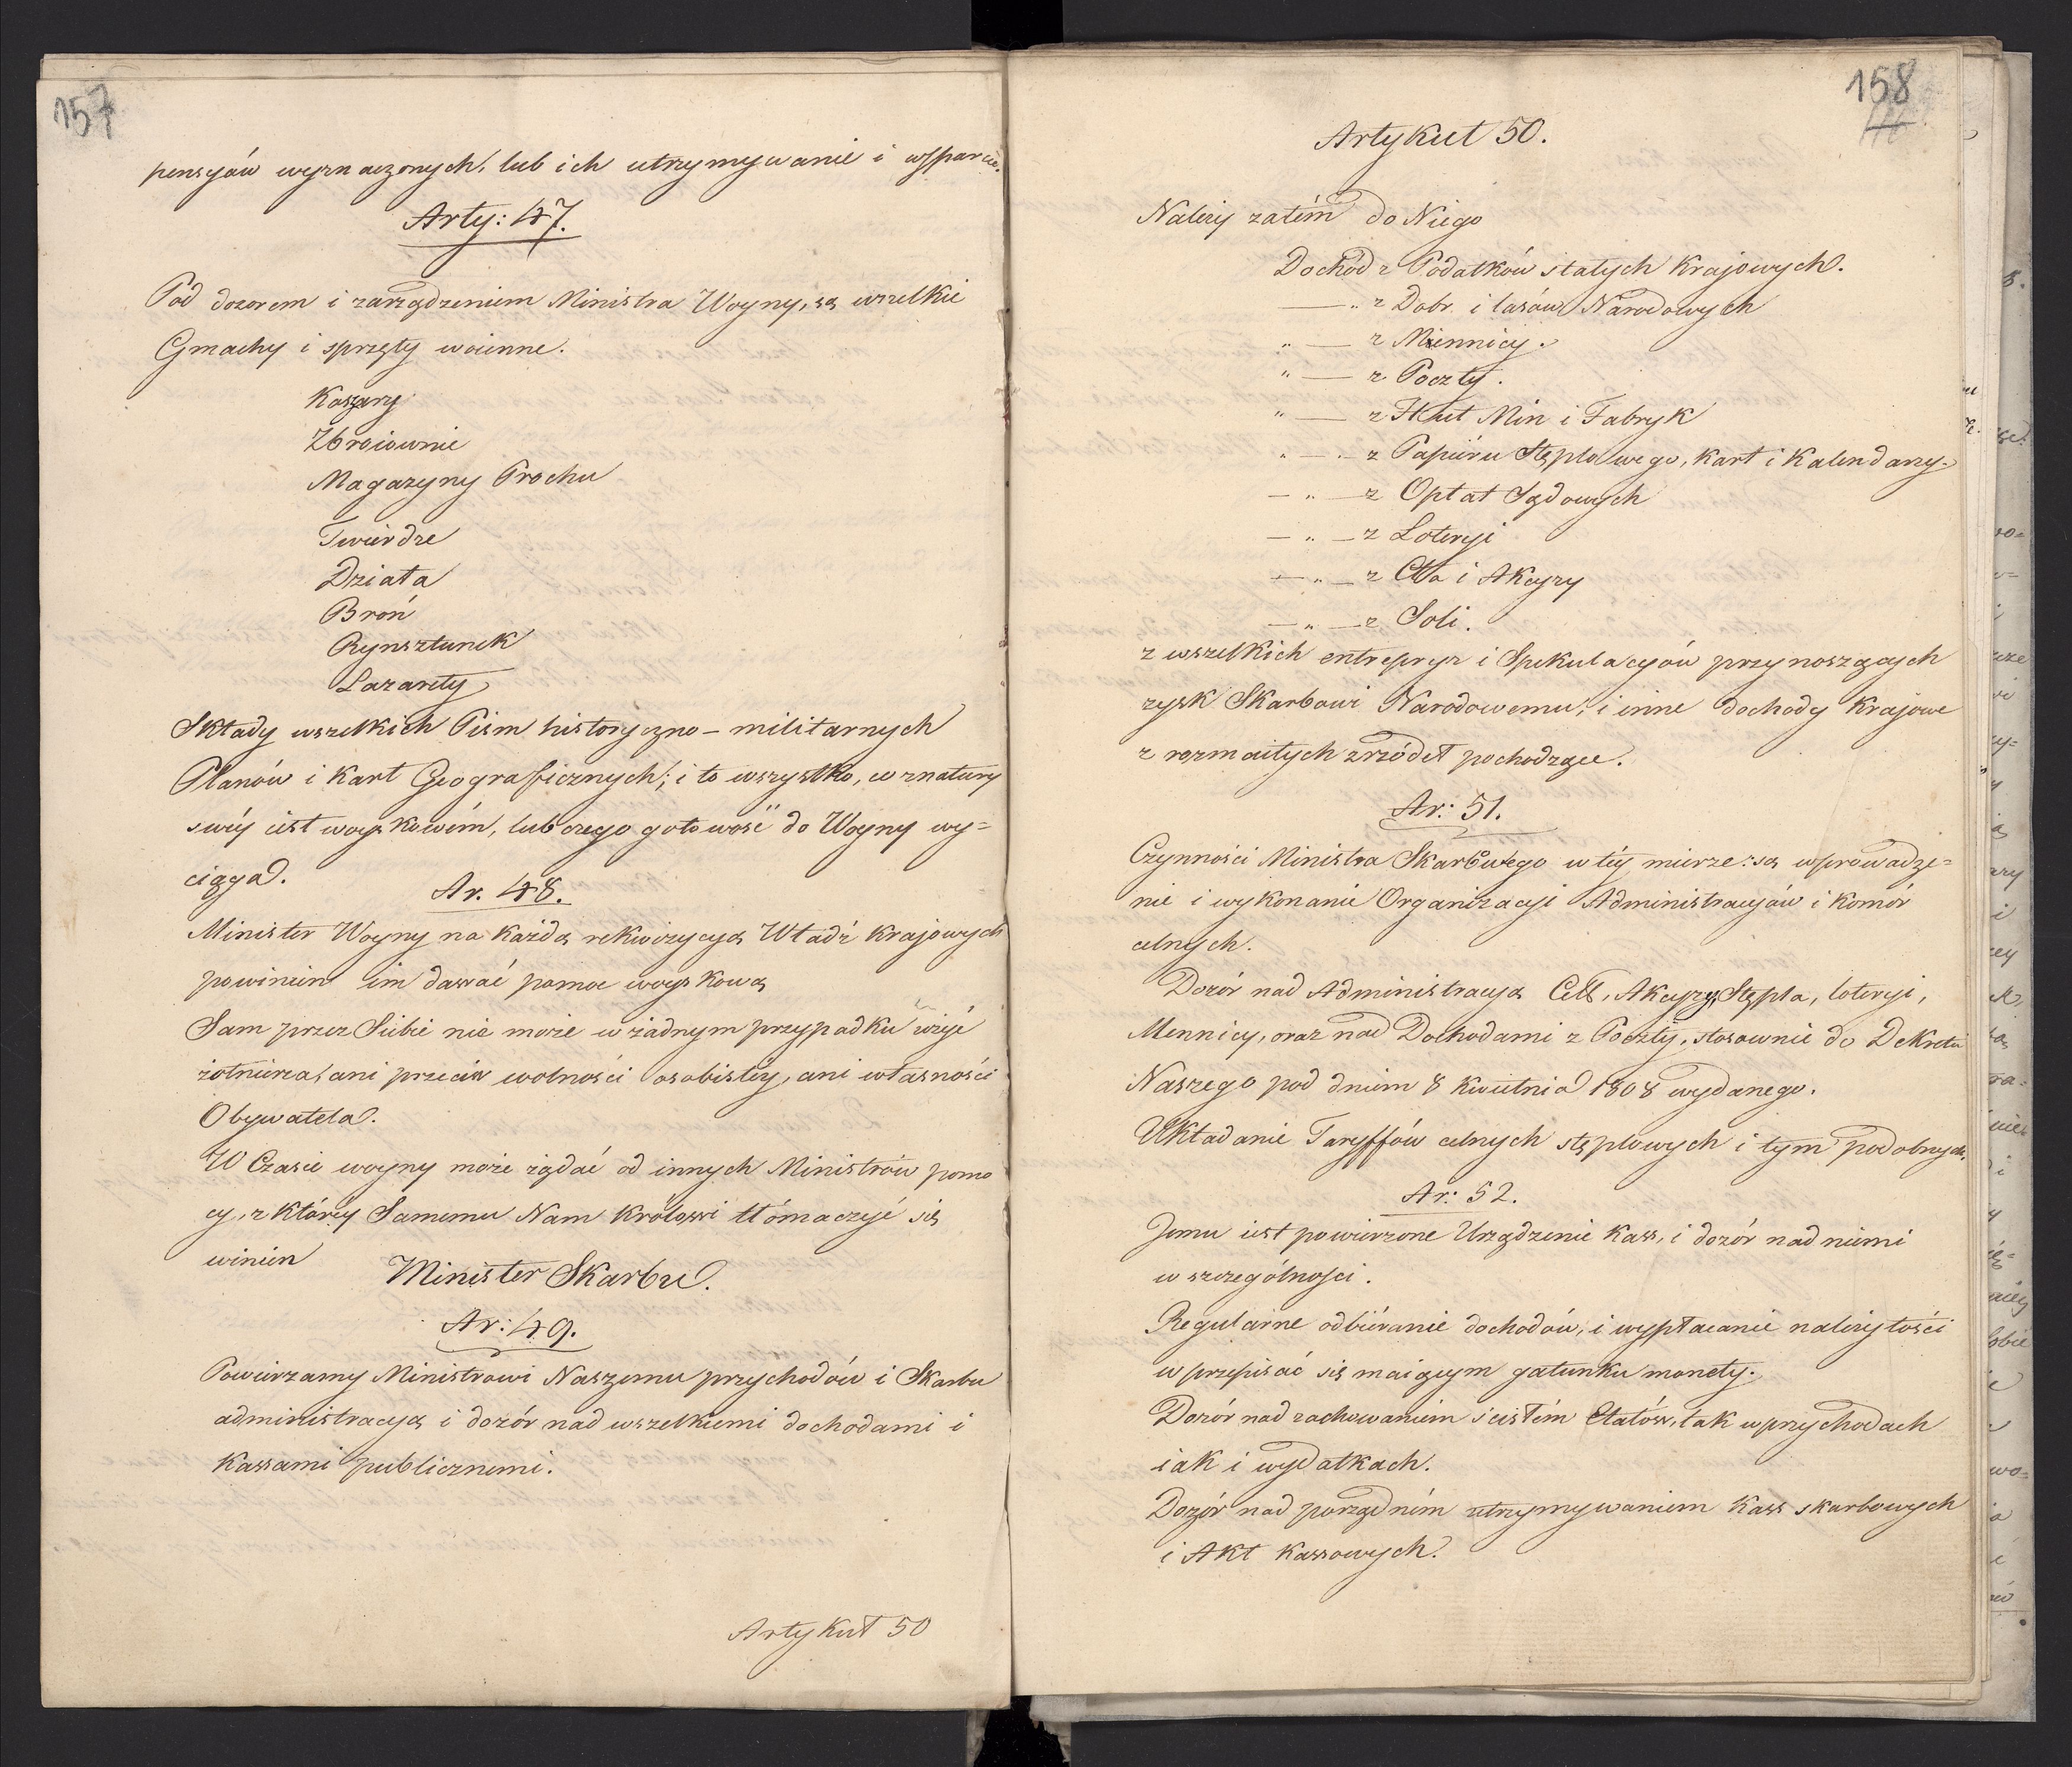 157
pensyów wyznaczonych, lub ich utrzymywanie i wsparcie.
Arty: 47.
Pod dozorem i zarządzeniem Ministra Woyny, są wszelkie
Gmachy i sprzęty woienne.
Koszary
Zbroiownie
Magazyny Prochu
Twierdze
Działa
Broń
Rynsztunek
Lazarety
Składy wszelkich Pism historyczno-militarnych
Planów i Kart Geograficznych; i to wszystko, co z natury
swéy iest woyskowém, lub czego gotowość do Woyny wy=
ciąga.
Ar. 48.
Minister Woyny na każdą rekwizycyą Władz Krajowych
powinien im dawać pomoc woyskową
Sam przez Siebie nie może w żadnym przypadku użyć
żołnierza, ani przeciw wolności osobistéy, ani własności
Obywatela.
W Czasie woyny może żądać od innych Ministrów pomo
cy, z któréy Samemu Nam Królowi tłómaczyć się
winien
Minister Skarbu.
Ar: 49.
Powierzamy Ministrowi Naszemu przychodów i Skarbu
administracyą i dozór nad wszelkiemi dochodami i
Kassami publicznemi.
Artykuł 50
158
Artykuł 50.
Należy zatém do Niego
Dochód z Podatków stałych Krajowych.
— „ z Dobr i lasów Narodowych
„ — z Mennicy.
„ — z Poczty.
„ — z Hut Min i Fabryk
„ — z Papiéru Stęplowego, Kart i Kalendarzy.
— „ — z Opłat Sądowych
— „ — z Loteryi
— „ — z Cła i Akcyzy
— „ — z Soli.
z wszelkich entrepryz i Spekulacyów przynoszących
zysk Skarbowi Narodowemu, i inne dochody Krajowe
z rozmaitych zrzódeł pochodzące.
Ar: 51.
Czynności Ministra Skarbowego w téy mierze: są wprowadze=
nie i wykonanie Organizacyi Administracyów i Komór
celnych.
Dozór nad Administracyą Ceł, Akcyzy, Stępla, loteryi,
Mennicy, oraz nad Dochodami z Poczty, stosownie do Dekretu
Naszego pod dniem 8 Kwietnia 1808 wydanego.
Układanie Taryffów celnych stęplowych i tym podobnych.
Ar: 52.
Jemu iest powierzone Urządzenie Kass, i dozór nad niemi
w szczególności.
Regularne odbiéranie dochodów, i wypłacanie należytości
w przepisać się maiącym gatunku monety.
Dozór nad zachowaniem ścisłém Etatów, tak w przychodach
iak i wydatkach.
Dozór nad porządném utrzymywaniem Kass skarbowych
i Akt Kassowych.